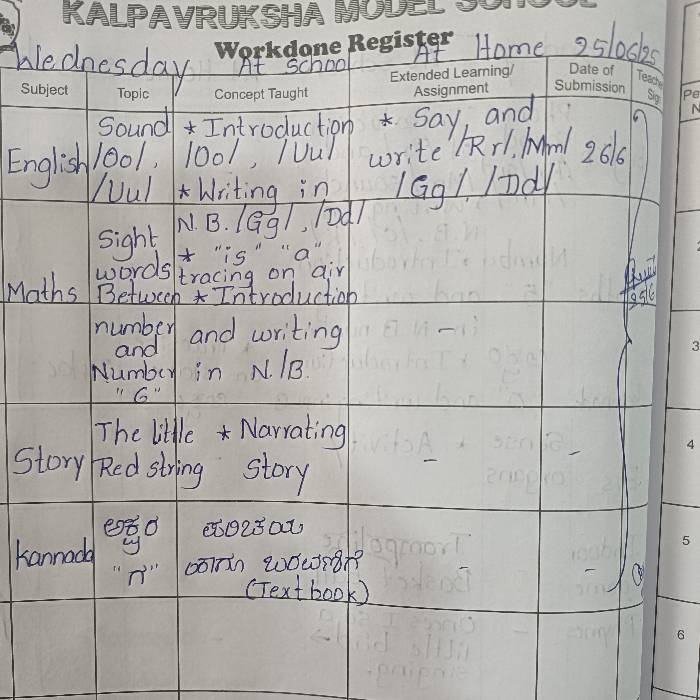 KALPAVRUKSHA MODEL SCHOOL
Workdone Register
Wednesday At School At Home 25/06/25
Subject Topic Concept Taught Extended Learning/ Assignment Date of Submission
English Sound /Oo/, /Uu/
* Introduction /Oo/, /Uu/
* Writing in N.B. /Gg/, /Dd/
* Say, and write /Rr/, /Mm/ /Gg/, /Dd/
26/6
Sight words
* "is" "a" tracing on air
Maths Between number and Number "6"
* Introduction and writing in N/B.
-
25/6
Story The little Red string
* Narrating Story
- -
Kannada ಅಕ್ಷರ "ಗ"
ಪರಿಚಯ
ಹಾಗೂ ಬರವಣಿಗೆ
(Text book)
- -
3
4
5
6